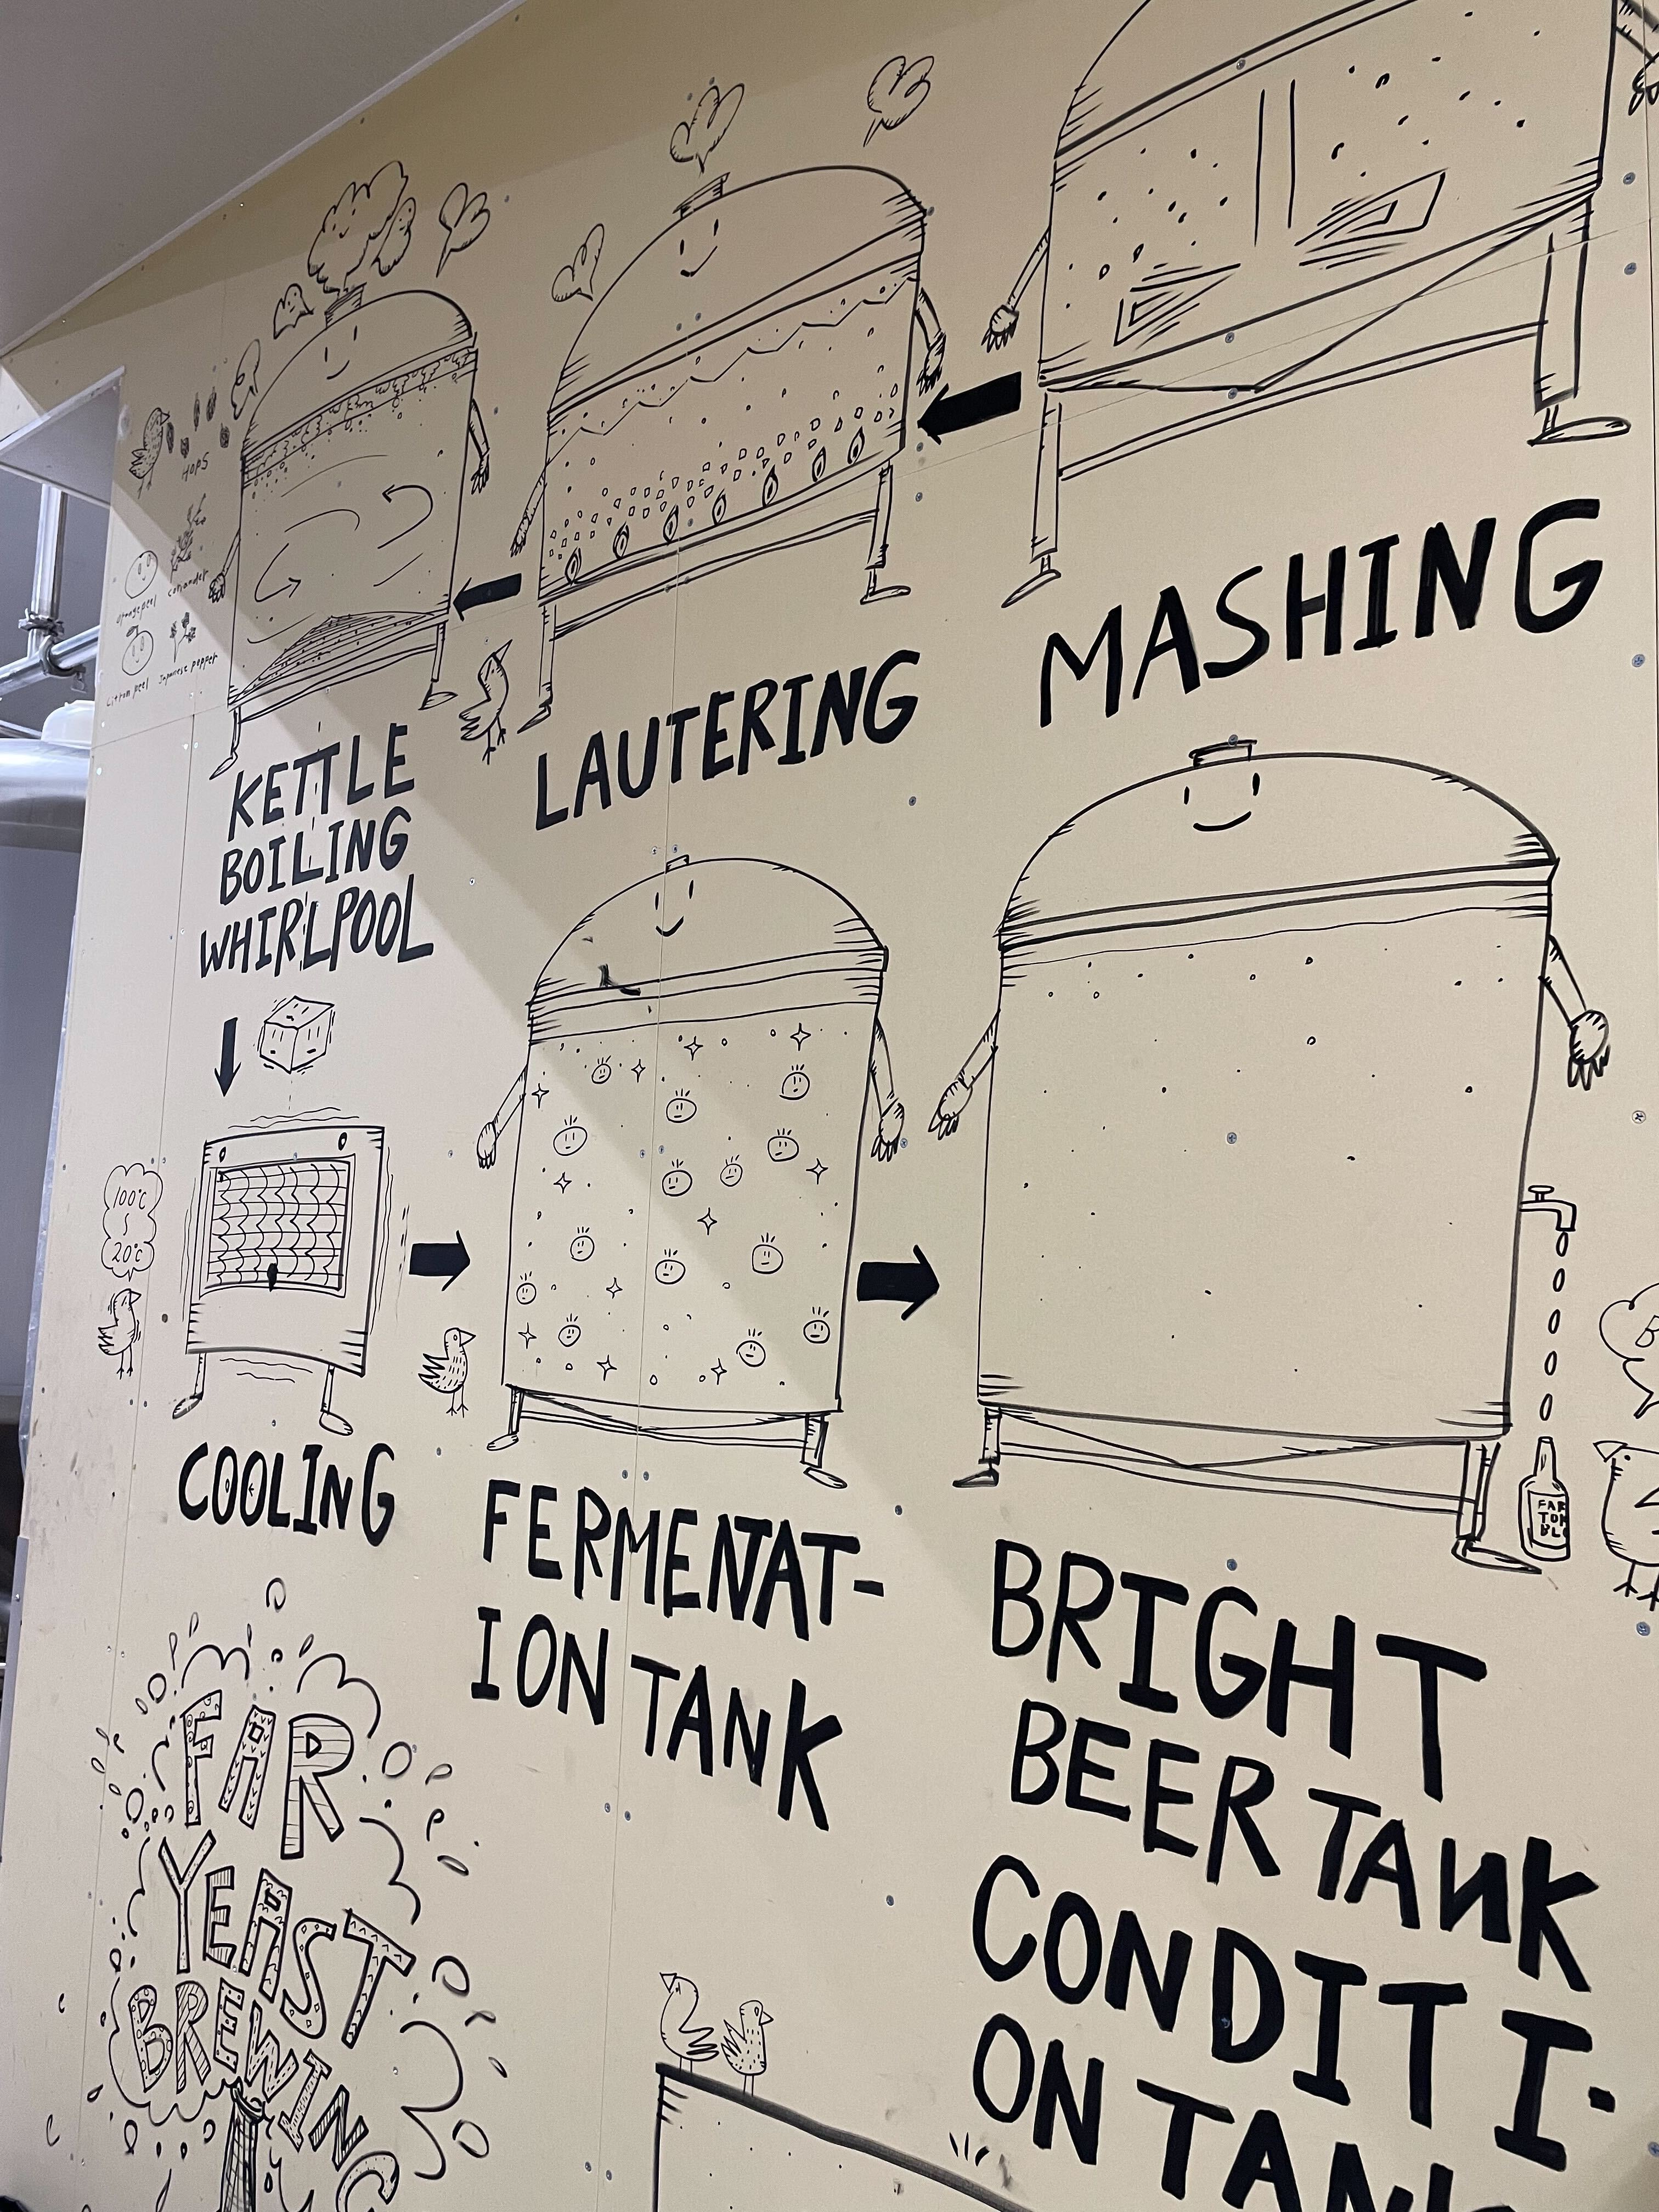 MASHING
LAUTERING
HOPS
orange peel
coriander
citron peel
Japanese pepper
KETTLE
BOILING
WHIRLPOOL
100℃
20℃
COOLING
FERMENAT-
ION TANK
BRIGHT
BEER TANK
CONDITI-
ON TANK
B
FAR
TO
BL
FAR
YEAST
BREWING